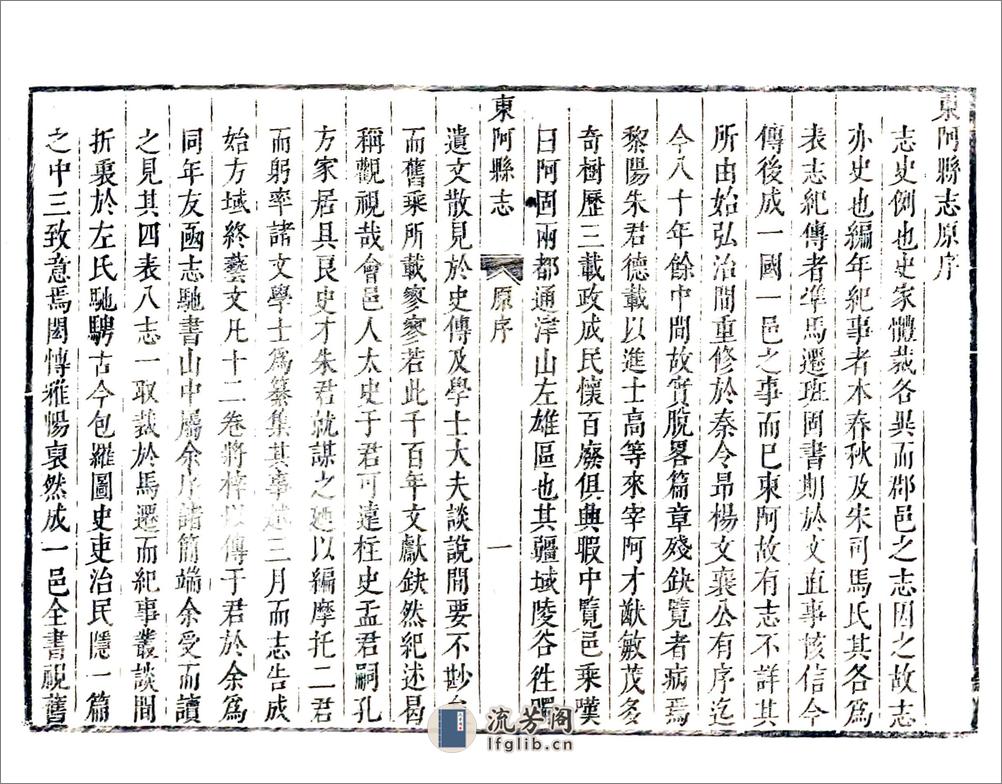 東阿縣志原序
志史例也史家體裁各異而郡邑之志因之故志
亦史也編年紀事者本春秋及宋司馬氏其各爲
表志紀傳者準馬遷班固書期於文直事核信今
傳後成一國一邑之事而已東阿故有志不詳其
所由始弘治間重修於秦令昂楊文襄公有序迄
今八十年餘中間故實脫畧篇章殘缺覽者病焉
黎陽朱君德載以進士高等來宰阿才猷敏茂多
奇樹歷三載政成民懷百廢俱興暇中覽邑乘嘆
曰阿固兩都通津山左雄區也其疆域陵谷徃
東阿縣志
原序
一
遺文散見於史傳及學士大夫談說間要不尠
而舊乘所載寥寥若此千百年文獻缺然紀述曷
稱觀視哉會邑人太史于君可遠柱史孟君嗣孔
方家居具良史才朱君就謀之廼以編摩托二君
而躬率諸文學士爲纂集其事越三月而志告成
始方域終藝文凡十二卷將梓以傳于君於余爲
同年友函志馳書山中屬余序諸簡端余受而讀
之見其四表八志一取裁於馬遷而紀事叢談間
折衷於左氏馳騁古今包羅圖史吏治民隱一篇
之中三致意焉閎愽雅暢裒然成一邑全書視舊
流芳阁
lfglib.cn